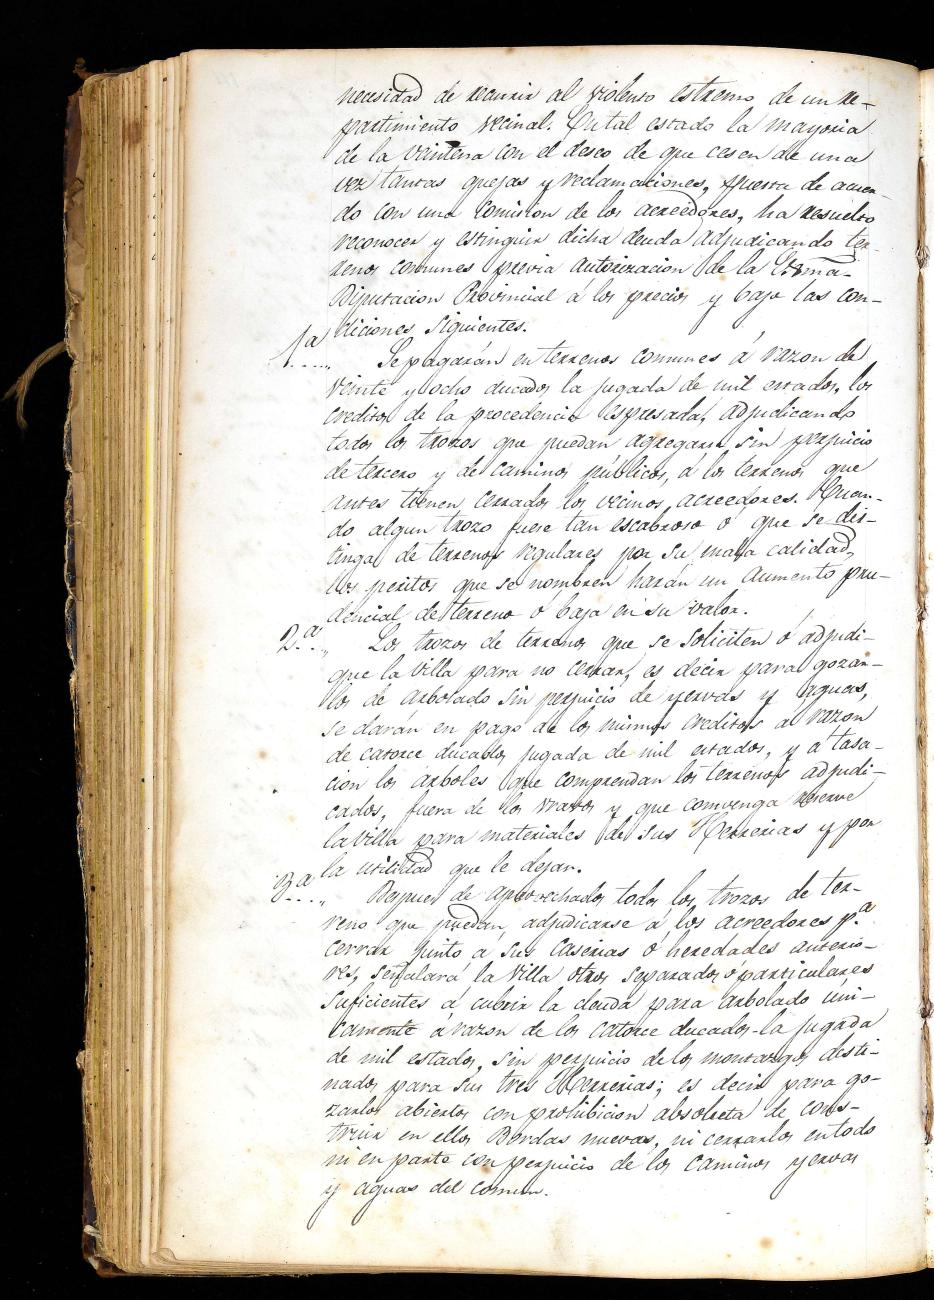 necesidad de recurrir al violento estremo de un re-
partimiento vecinal. En tal estado la mayoria
de la veintena con el deseo de que cesen de una
vez tantas quejas y reclamaciones, puesta de acuer-
do con una comision de los acreedores, ha resuelto
reconocer y estinguir dicha deuda adjudicando ter-
renos comunes previa autorizacion de la Escma.
Diputacion Provincial á los precios y bajo las con-
diciones siguientes.
1.a .... „ Se pagarán en terrenos comunes á razon de
veinte y ocho ducados la jugada de mil estados, los
creditos de la procedencia espresada, adjudicando
todos los trozos que puedan agregarse sin perjuicio
de tercero y de caminos públicos, á los terrenos que
antes tienen cerrados los vecinos acreedores. Cuan-
do algun trozo fuere tan escabroso ó que se dis-
tinga de terrenos regulares por su mala calidad,
los peritos que se nombren harán un aumento pru-
dencial de terreno ó baja en su valor.
2.a .. „ Los trozos de terrenos que se soliciten ó adjudi-
que la Villa para no cerrar, es decir para gozar-
los de arbolado sin perjuicio de yervas y aguas,
se darán en pago de los mismos creditos á razon
de catorce ducados jugada de mil estados, y á tasa-
cion los árboles que comprendan los terrenos adjudi-
cados, fuera de los bravos y que convenga reserve
la Villa para materiales de sus Herrerias y por
la utilidad que le dejan.
3.a .... „ Despues de aprovechados todos los trozos de ter-
reno que puedan adjudicarse á los acreedores p.a
cerrar junto á sus caserias ó heredades anterio-
res, señalará la Villa otros separados ó particulares
suficientes á cubrir la deuda para arbolado úni-
camente á razon de los catorce ducados la jugada
de mil estados, sin perjuicio de los montazgos desti-
nados para sus tres Herrerias; es decir para go-
zarlos abiertos con prohibicion absoluta de cons-
truir en ellos Bordas nuevas, ni cerrarlos en todo
ni en parte con perjuicio de los caminos yervas
y aguas del comun.